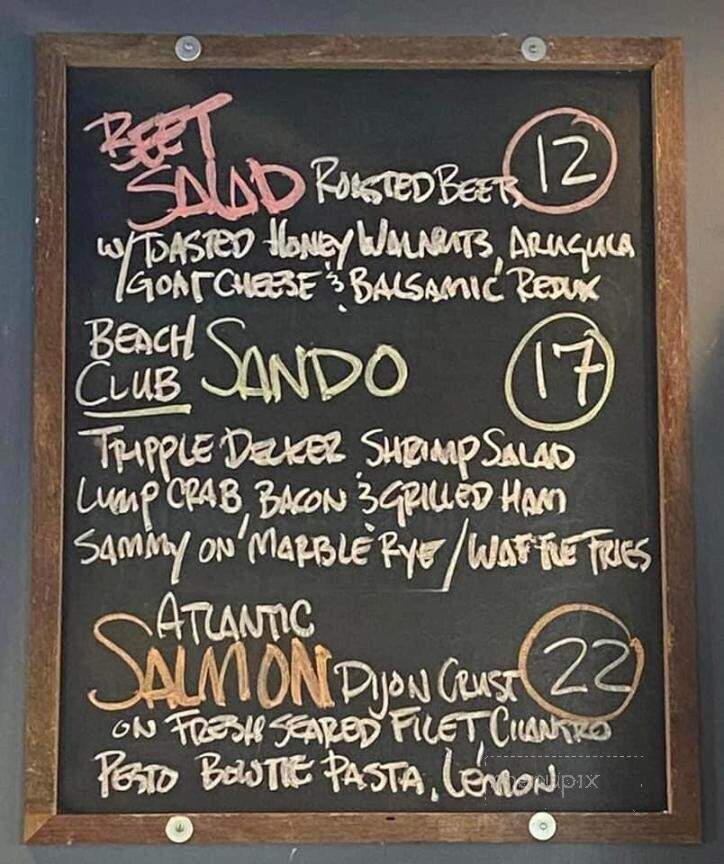 BEET
SALAD ROASTED BEETS 12
W/TOASTED HONEY WALNUTS, ARUGULA
/GOAT CHEESE & BALSAMIC REDUX
BEACH
CLUB SANDO 17
TRIPPLE DECKER SHRIMP SALAD
LUMP CRAB, BACON & GRILLED HAM
SAMMY ON MARBLE RYE / WAFFLE FRIES
ATLANTIC
SALMON DIJON CRUST 22
ON FRESH SEARED FILET CILANTRO
PESTO BOWTIE PASTA, LEMON
menupix